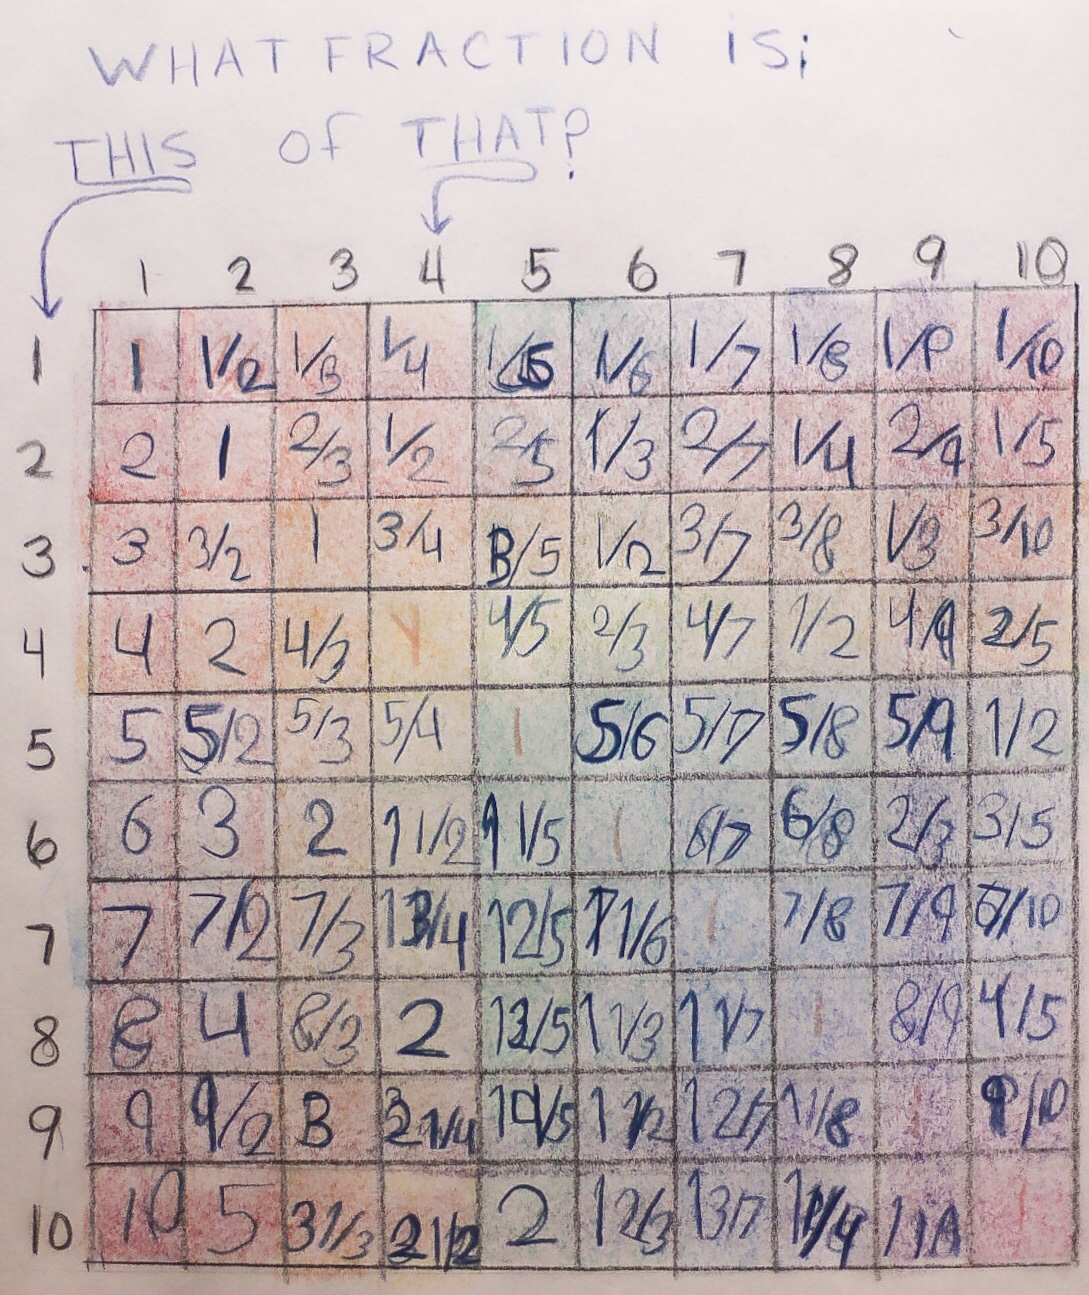 WHAT FRACTION IS;
THIS of THAT?
1 2 3 4 5 6 7 8 9 10
1 1 1/2 1/3 1/4 1/5 1/6 1/7 1/8 1/9 1/10
2 2 1 2/3 1/2 2/5 1/3 2/7 1/4 2/9 1/5
3 3 3/2 1 3/4 3/5 1/2 3/7 3/8 1/3 3/10
4 4 2 4/3 1 4/5 2/3 4/7 1/2 4/9 2/5
5 5 5/2 5/3 5/4 1 5/6 5/7 5/8 5/9 1/2
6 6 3 2 1 1/2 1 1/5 1 6/7 6/8 2/3 3/5
7 7 7/2 7/3 1 3/4 1 2/5 1 1/6 1 7/8 7/9 7/10
8 8 4 8/3 2 1 3/5 1 1/3 1 1/7 1 8/9 4/5
9 9 9/2 3 2 1/4 1 4/5 1 1/2 1 2/7 1 1/8 1 9/10
10 10 5 3 1/3 2 1/2 2 1 2/3 1 3/7 1 1/4 1 1/9 1